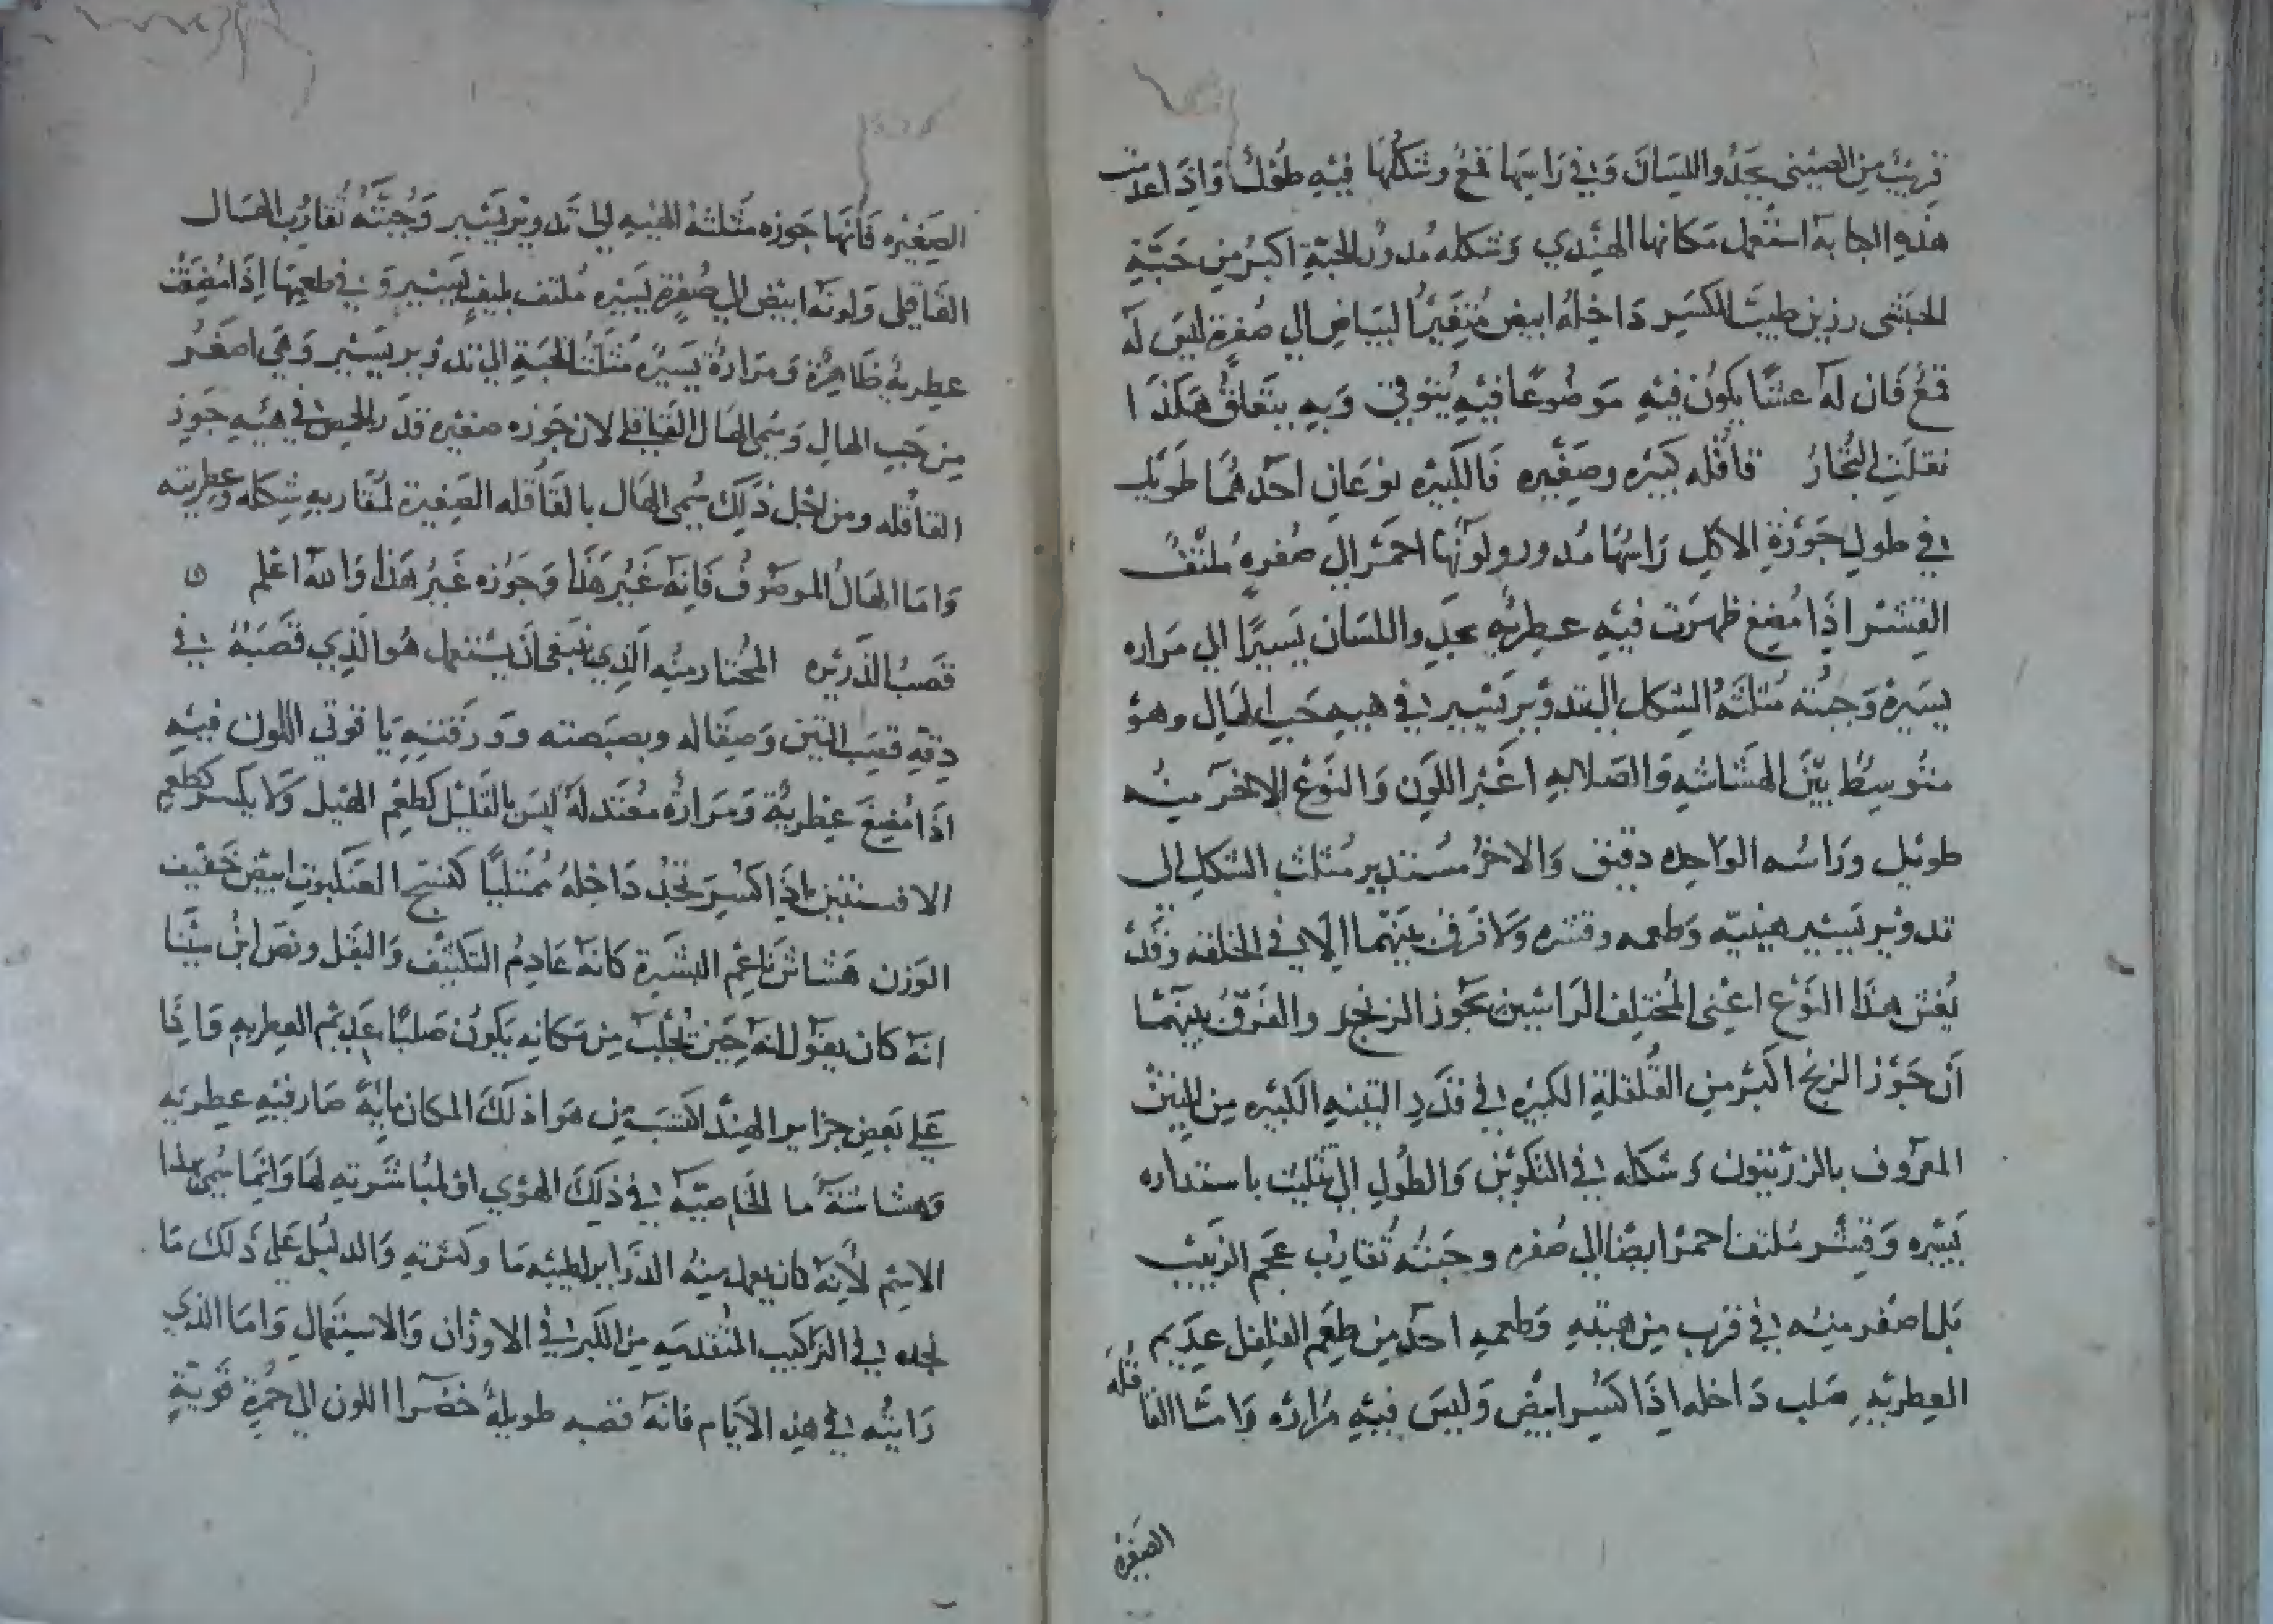 قريب من الصيني يحدوا اللسان وفي راسها قمع وشكلها فيه طول واذا عدمت
هذه استعمل مكانها الهندي وشكله مدور الحبة اكبر من حبة
الحبشي رزين طيب الكسر داخله ابيض متغير البياض الى صفرة ليس له
قمع فان له عشا يكون فيه موضوعا فيه وبه يتعلق هكذا
نقلت التجار قاقله كبيره وصغيره فالكبيره نوعان احدهما طويل
في طول جوزة الاكل راسها مدور ولونها احمر الى صفره ملتف
القشر اذا مضغ ظهرت فيه عطريه يحدوا اللسان يسيرا الى مراره
يسيرة وحبته مثلثة الشكل الى تدوير يسير في هيه حب الهال وهو
متوسط بين الهشاشه والصلابه اغبر اللون والنوع الاخر منه
طويل وراسه الواحد دقيق والاخر مستدير مثلث الشكل الى
تدوير يسير هينيه وطعمه وقشره ولا فرق بينهما الا في الخلقه وقد
يغش هذا النوع اعني المختلف الراسين بجوز الزنج والفرق بينهما
ان جوز الزنج اكبر من القلقلة الكبيره في قدر التينه الكبيره من التين
المعروف بالزرنيتون وشكله في التكوين والطول الى تثليث باستداره
يسيره وقشر ملتف احمر ايضا الى صفره وحبته تقارب عجم الزبيب
بل اصغر منه في قرب من هيته وطعمه احد من طعم الفلفل عديم
العطريه صلب داخله اذا كسر ابيض وليس فيه مراره واما القاقله
الصغيره
الصغيره فانها جوزه مثلثة الهيه الى تدوير يسير وحبته تقارب الهال
القاقلى ولونه ابيض الى صفرة يسيره ملتف بليف يسير وفي طعمها اذا مضغت
عطرية ظاهرة ومرارة يسيره مثلثة الحبة الى تدوير يسير وهي اصغر
من حب الهال وسمي الهال القاقلي لان جوزه صغيره قدر الحمص في هيه جوز
القاقله ومن اجل ذلك سمي الهال بالقاقله الصغيرة لمقاربه شكله وعطريته
واما الهال الموصوف فانه غير هذا وجوزه غير هذا والله اعلم ه
قصب الذريره المختار منه الذي ينبغي ان يستعمل هو الذي قصبه في
دقه قصب التبن وصقاله وبصبصته وورقته ياقوتي اللون فيه
اذا مضغ عطرية ومرارة معتدله ليس بالقليل كطعم الهيل ولا يكسر كطعم
الافسنتين اذا كسر تجد داخله ممتليا كنسج العنكبوت ابيض خفيف
الوزن هشاش ناعم البشرة كانه عادم التكثيف والثقل ونص ابن سينا
انه كان يقول انه حين يجلب من مكانه يكون صلبا عديم العطريه فاذا
على بعض جزاير الهند اكتسب من هوا ذلك المكان صار فيه عطريه
وهشاشة ما لخاصيه في ذلك الهوى او لمباشرته لها وانما سمي بهذا
الاسم لانه كان يعمل منه الذراير لطيبه ما وكثرته والدليل على ذلك ما
تجده في التراكيب المتقدمه من الكبر في الاوزان والاستعمال واما الذي
رايته في هذه الايام فانه قصبه طويله خضرا اللون الى حمرة قوية